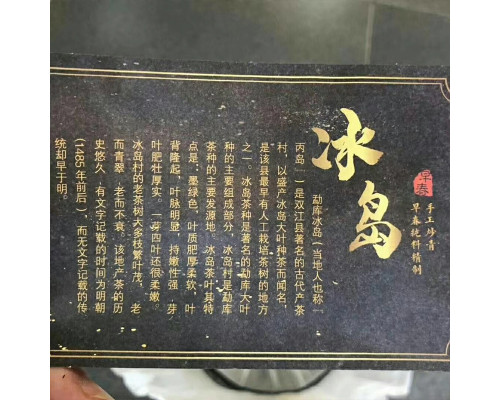 冰岛
早春
手工炒青
早春纯料精制
勐库冰岛（当地人也称“
丙岛”）是双江县著名的古代产茶
村，以盛产冰岛大叶种茶而闻名，
是该县最早有人工栽培茶树的地方
之一。冰岛茶种是著名的勐库大叶
种的主要组成部分，冰岛村是勐库
茶种的主要发源地。冰岛茶叶其特
点是：墨绿色，叶质肥厚柔软，叶
背隆起，叶脉明显，持嫩性强，芽
叶肥壮厚实。一芽四叶还很柔嫩。
冰岛村的老茶树大多枝繁叶茂，老
而青翠，老而不衰。该地产茶的历
史悠久，有文字记载的时间为明朝
（1485年前后），而无文字记载的传
统却早于明。